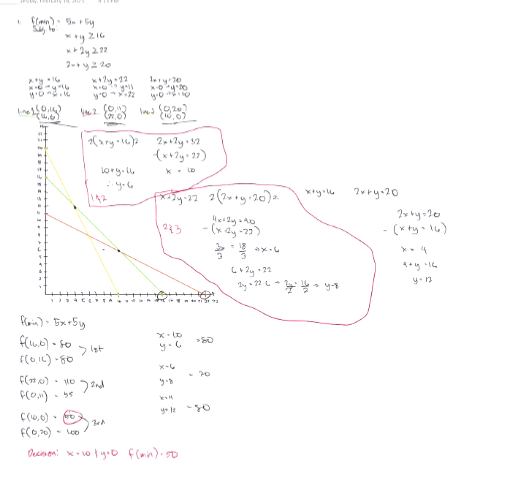 1. f(min) = 5x + 5y
Subj to:
x + y ≥ 16
x + 2y ≥ 22
2x + y ≥ 20
x+y = 16
x=0 → y=16
y=0 → x=16
x+2y=22
x=0 → y=11
y=0 → x=22
2x+y=20
x=0 → y=20
y=0 → x=10
line 1 (0,16)
(16,0)
line 2 (0,11)
(22,0)
line 3 (0,20)
(10,0)
2(x+y=16)2
2x+2y=32
-(x+2y=22)
x = 10
10+y=16
∴ y=6
1&2
x+2y=22 2(2x+y=20)2
2&3
4x+2y=40
-(x+2y=22)
3x/3 = 18/3 → x=6
6+2y=22
2y=22-6 → 2y/2 = 16/2 → y=8
x+y=16 2x+y=20
2x+y=20
-(x+y=16)
x = 4
4+y=16
y=12
f(min) = 5x+5y
f(16,0) = 80
f(0,16) = 80
1st
f(22,0) = 110
f(0,11) = 55
2nd
f(10,0) = 50
f(0,20) = 100
3rd
x=10
y=6
=80
x=6
y=8
= 70
x=4
y=12
=80
Decision: x=10 + y=0 f(min)=50